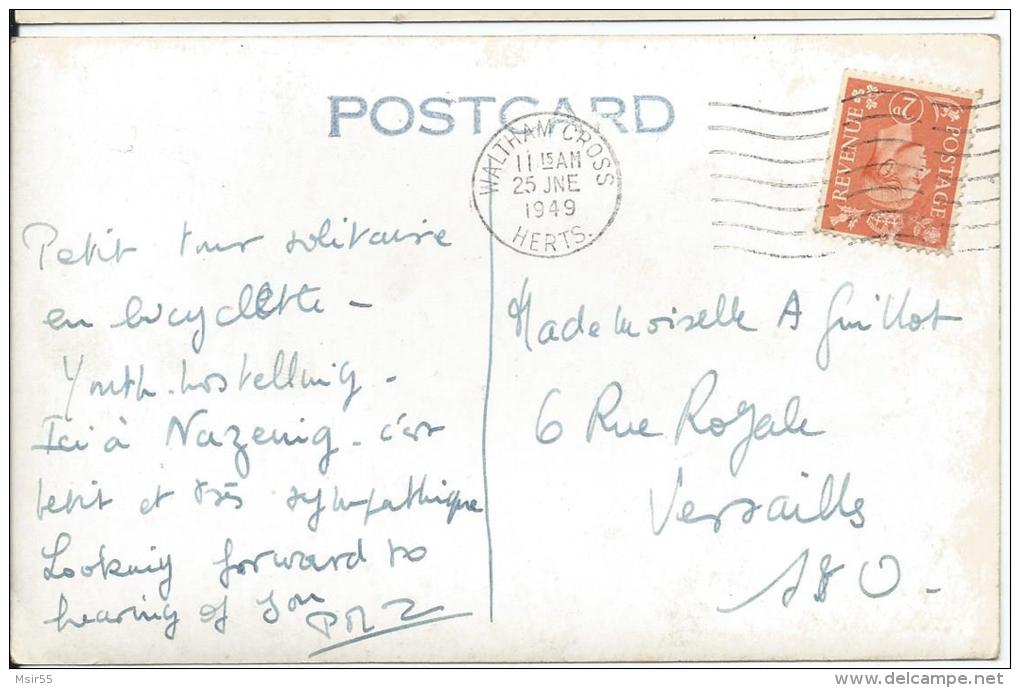 POSTCARD
WALTHAM CROSS
11 15 AM
25 JNE
1949
HERTS.
REVENUE
2D
POSTAGE
Petit tour solitaire
en bicyclette -
Youth-hostelling -
Ici à Nazeing - c'est
petit et très sympathique
Looking forward to
hearing of you
Mademoiselle A Guillot
6 Rue Royale
Versailles
S & O -
Msir55
delcampe.net